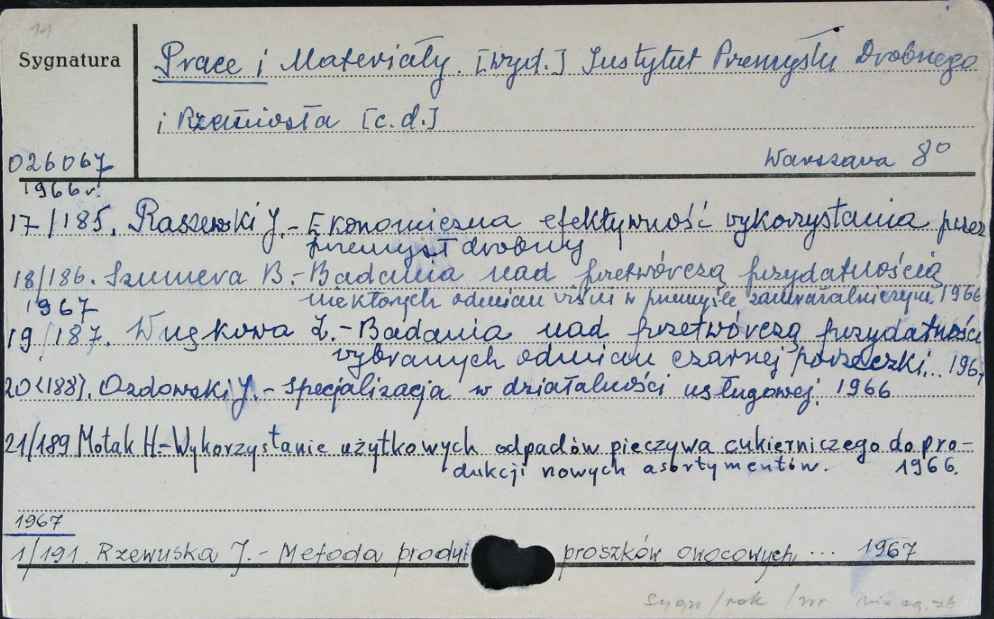 Sygnatura
Prace i Materiały. [wyd.] Instytut Przemysłu Drobnego
i Rzemiosła [c.d.]
Warszawa 8°
026067
1966 r.
17/185. Raszewski J.- Ekonomiczna efektywność wykorzystania przez
przemysł drobny
18/186. B.- Badania nad przetwórczą przydatnością
niektórych odmian wiśni w przemyśle zamrażalniczym. 1966
1967
19/187. - Badania nad przetwórczą przydatności
wybranych odmian czarnej porzeczki... 1967
20(188). Ozdowski J.- Specjalizacja w działalności usługowej. 1966
21/189 Motak H.- Wykorzystanie użytkowych odpadów pieczywa cukierniczego do pro-
dukcji nowych asortymentów. 1966.
1967
1/191. Rzewuska J.- Metoda produk proszków owocowych ... 1967
Sygn/rok /nr